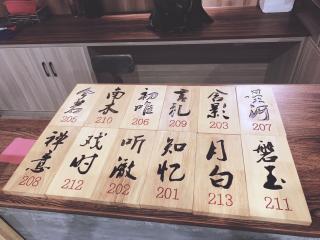 205
南木
210
初唯
206
言礼
209
含影
203
207
禅意
208
戏时
212
听澈
202
知忆
201
月白
213
磐玉
211